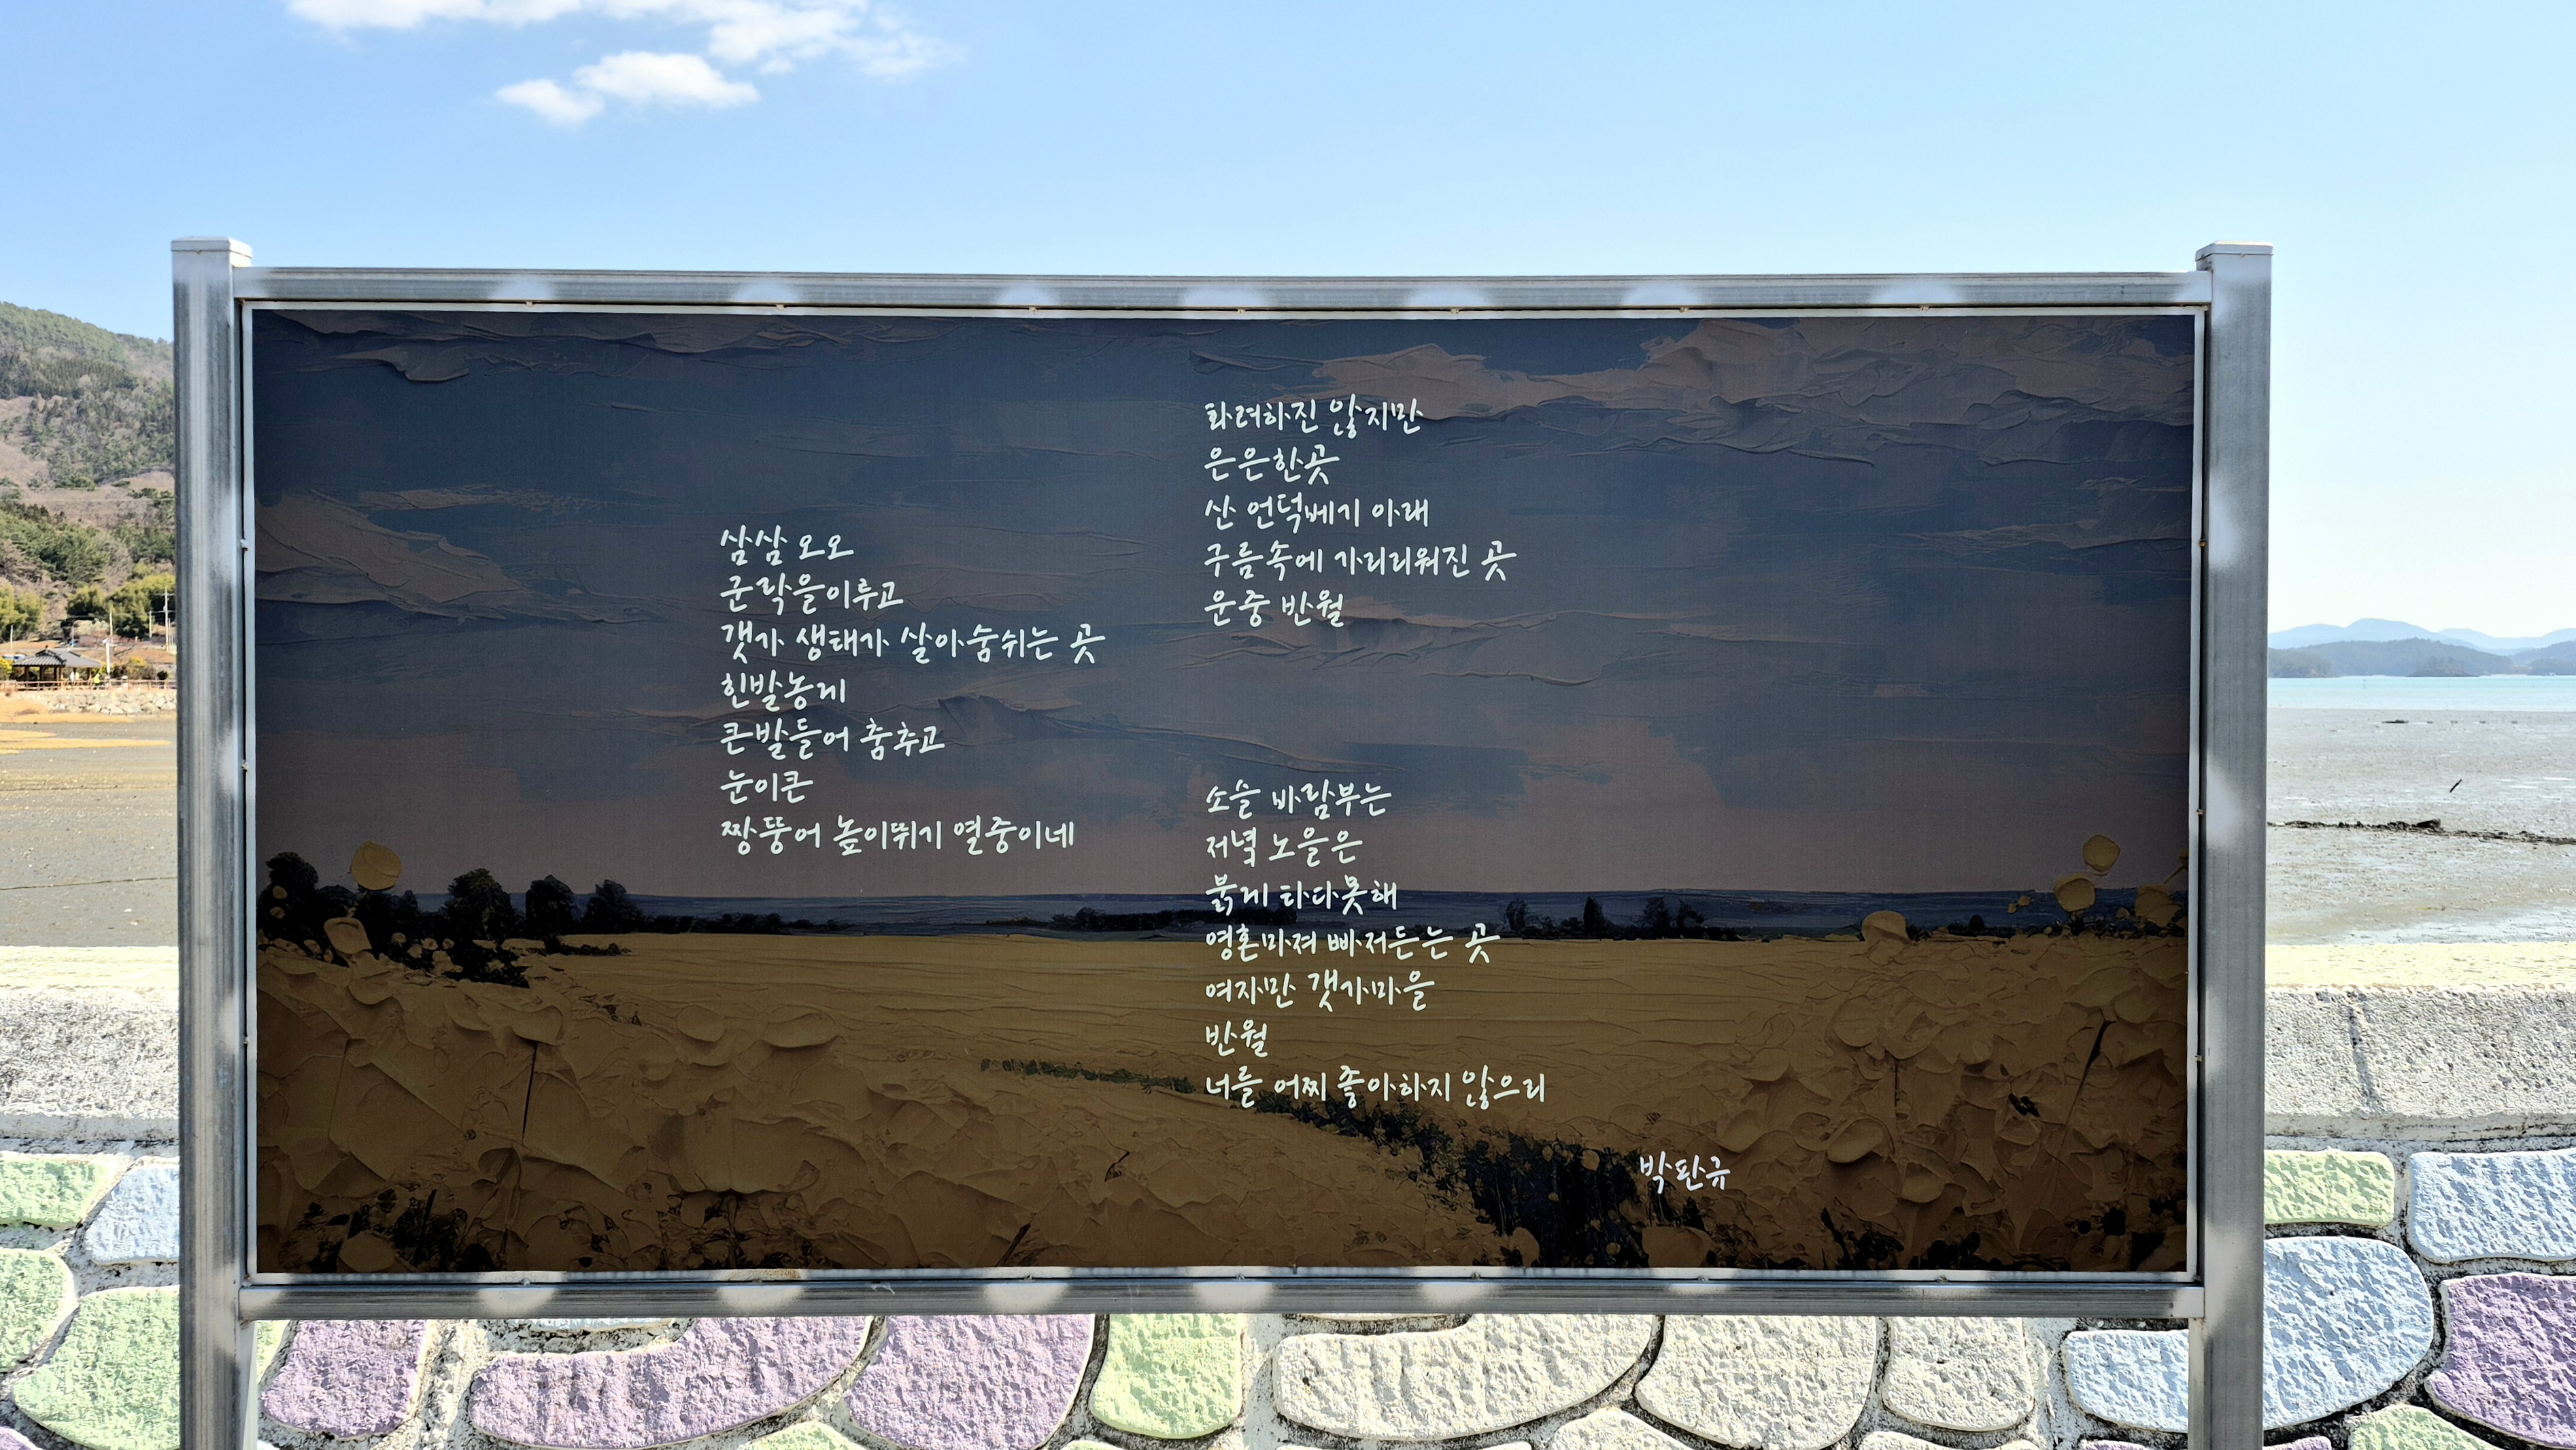 삼삼 오오
군락을이루고
갯가 생태가 살아숨쉬는 곳
흰발농게
큰발들어 춤추고
눈이큰
짱뚱어 높이뛰기 열중이네
화려하진 않지만
은은한곳
산 언덕베기 아래
구름속에 가리리워진 곳
운중 반월
소슬 바람부는
저녁 노을은
붉게 타다못해
영혼마져 빠져든는 곳
여자만 갯가마을
반월
너를 어찌 좋아하지 않으리
박판규